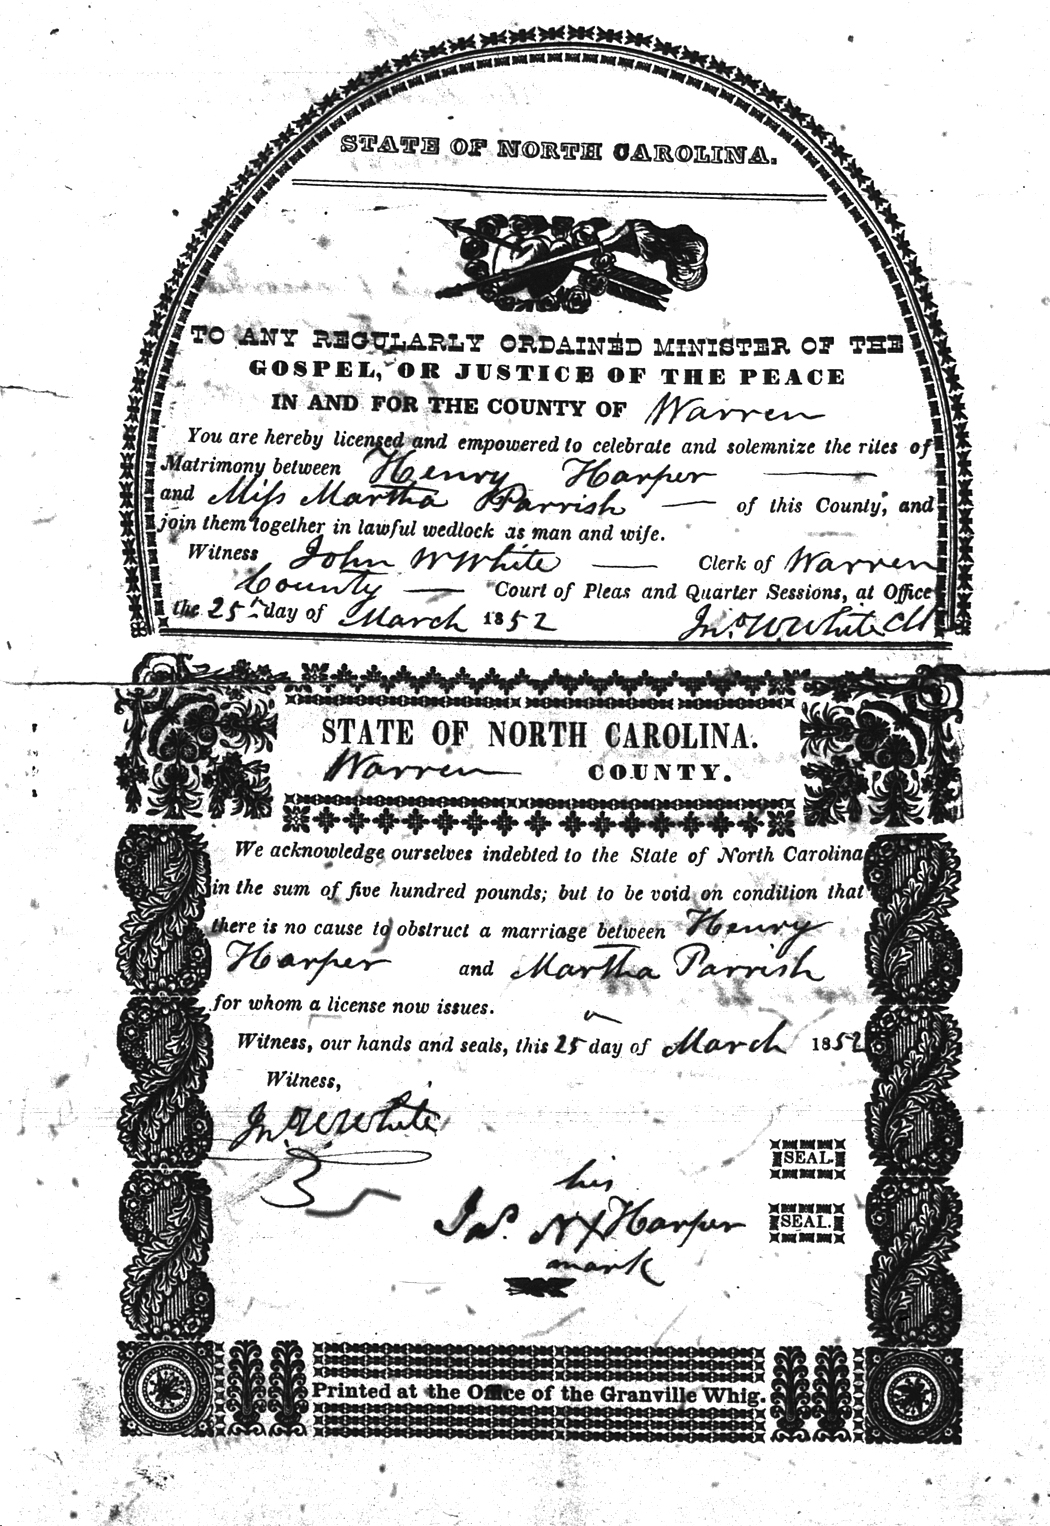 STATE OF NORTH CAROLINA.
TO ANY REGULARLY ORDAINED MINISTER OF THE
GOSPEL, OR JUSTICE OF THE PEACE
IN AND FOR THE COUNTY OF Warren
You are hereby licensed and empowered to celebrate and solemnize the rites of
Matrimony between Henry Harper
and Miss Martha Parrish of this County, and
join them together in lawful wedlock as man and wife.
Witness John W White Clerk of Warren
County Court of Pleas and Quarter Sessions, at Office
the 25th day of March 1852 Jno. W. White Clk
STATE OF NORTH CAROLINA.
Warren COUNTY.
We acknowledge ourselves indebted to the State of North Carolina
in the sum of five hundred pounds; but to be void on condition that
there is no cause to obstruct a marriage between Henry
Harper and Martha Parrish
for whom a license now issues.
Witness, our hands and seals, this 25 day of March 1852
Witness,
Jno. W. White
SEAL.
his
X Harper SEAL.
mark
Printed at the Office of the Granville Whig.